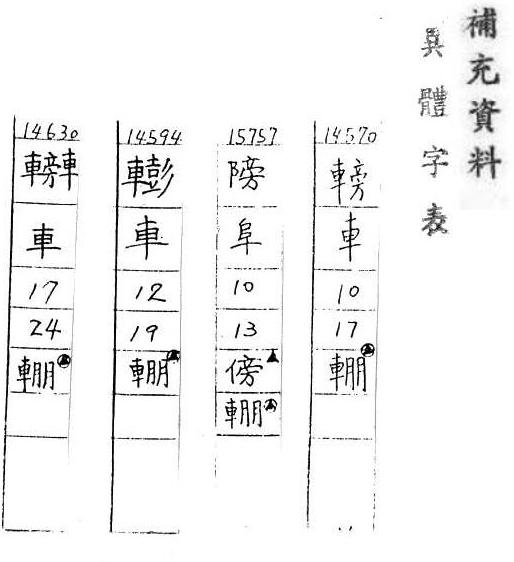 補充資料
異體字表
14570
車
10
17
輣
15757
阜
10
13
傍
輣
14594
車
12
19
輣
14630
車
17
24
輣